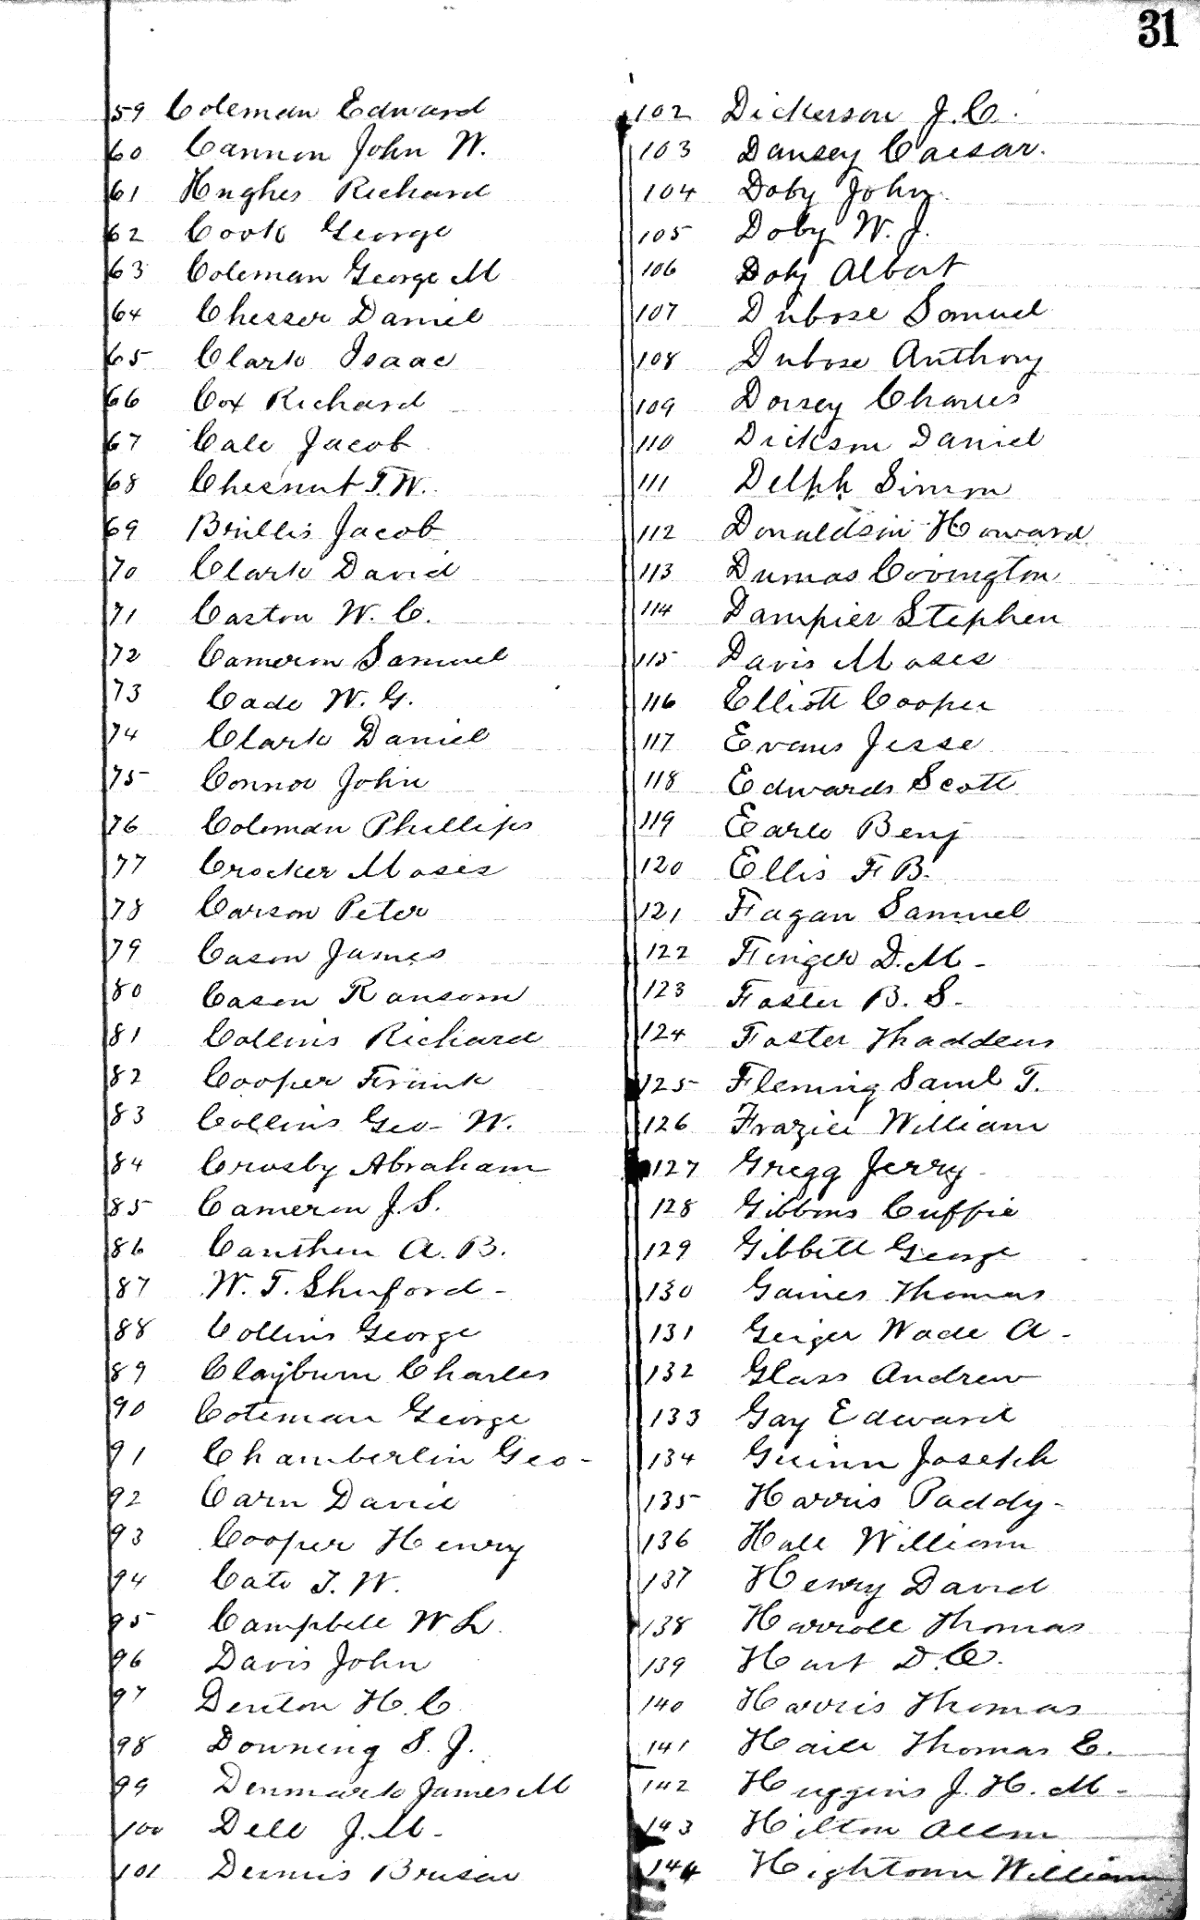 31
59 Coleman Edward
60 Cannon John W.
61 Hughes Richard
62 Cook George
63 Coleman George M
64 Chesser Daniel
65 Clark Isaac
66 Cox Richard
67 Cale Jacob
68 Chesnut T. W.
69 Brillis Jacob
70 Clark David
71 Caston W. C.
72 Cameron Samuel
73 Cade W. G.
74 Clark Daniel
75 Connor John
76 Coleman Phillips
77 Crocker Moses
78 Carson Peter
79 Cason James
80 Cason Ransom
81 Collins Richard
82 Cooper Frank
83 Collins Geo- W.
84 Crosby Abraham
85 Cameron J. S.
86 Cauthen A. B.
87 W. T. Shuford -
88 Collins George
89 Clayburn Charles
90 Coteman George
91 Chamberlin Geo-
92 Carn David
93 Cooper Henry
94 Cato T. W.
95 Campbell W L
96 Davis John
97 Denton H. C
98 Downing S. J.
99 Denmark James M
100 Dell J. M-
101 Dennis
102 Dickerson J. C.
103 Dansey Caesar.
104 Doby John.
105 Doby W. J.
106 Doby Albert
107 Dubose Samuel
108 Dubose Anthony
109 Dorsey Charles
110 Dickson Daniel
111 Delph Simon
112 Donaldson Howard
113 Dumas Covington
114 Dampier Stephen
115 Davis Moses
116 Elliott Cooper
117 Evans Jesse
118 Edwards Scott
119 Earle Benj
120 Ellis F B.
121 Fagan Samuel
122 Finger D. M -
123 Foster B. S-
124 Foster Thaddeus
125 Fleming Saml T.
126 Frazier William
127 Gregg Jerry -
128 Gibbons Cuffie
129 Gibbett George
130 Gaines Thomas
131 Geiger Wade A -
132 Glass Andrew
133 Gay Edward
134 Guinn Joseph
135 Harris Paddy-
136 Hall William
137 Henry David
138 Harroll Thomas
139 Hart D. C.
140 Harris Thomas
141 Haile Thomas E.
142 Huggins J. H. M -
143 Hilton Allen
144 Hightown William